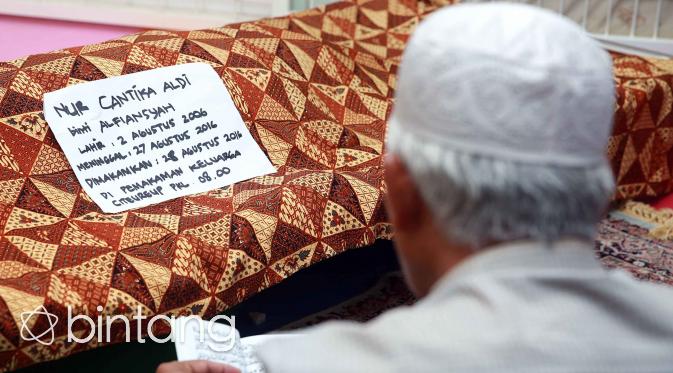 NUR CANTIKA ALDI
binti ALFIANSYAH
LAHIR : 2 AGUSTUS 2006
MENINGGAL : 27 AGUSTUS 2016
DIMAKAMKAN : 28 AGUSTUS 2016
DI PEMAKAMAN KELUARGA
CITEUREUP PKL 08.00
bintang